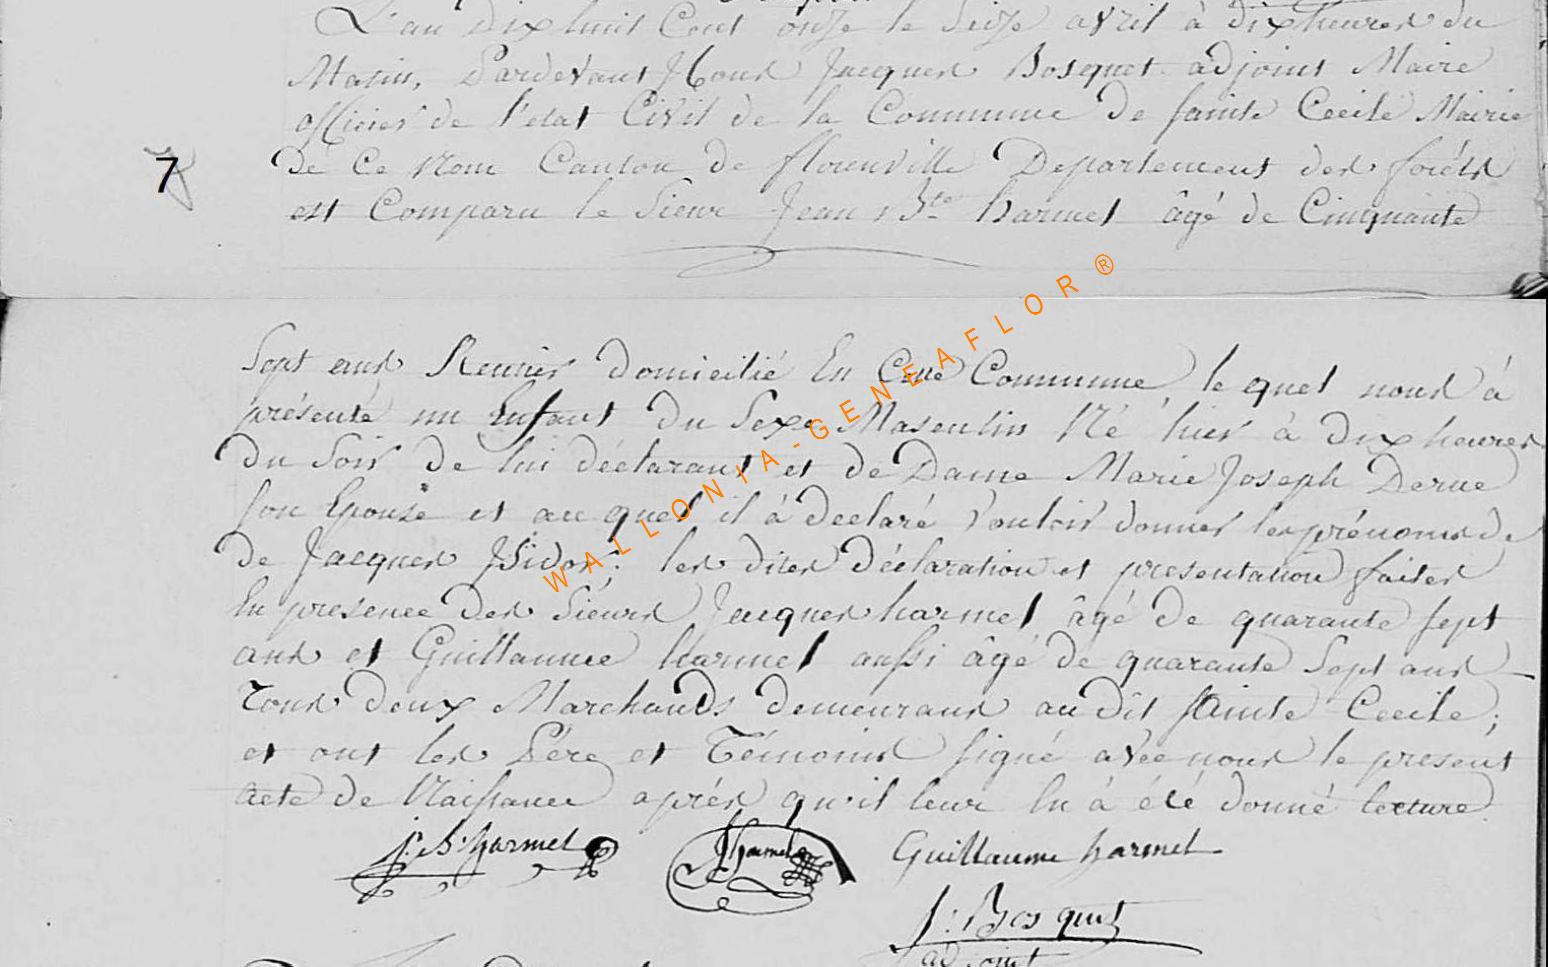 L'an Dix huit Cent onze le Seize avril à dix heures du
Matin, Pardevant Nous Jacques Bosquet adjoint Maire
officier de l'état Civil de la Commune de sainte Cecile Mairie
de Ce Nom Canton de florenville Departement des forêts
7
est Comparu le Sieur Jean Bte harmel âgé de Cinquante
Sept ans Rentier Domicilié En Cette Commune, le quel nous à
présenté un Enfant du Sexe Masculin Né hier à dix heures
du Soir de lui déclarant et de Dame Marie Joseph Derue
son Epouse et au quel il à déclaré vouloir donner les prénoms de
de Jacques Isidor; les dites déclaration et presentation faites
En presence des Sieurs Jacques harmel âgé de quarante sept
ans et Guillaume harmel aussi âgé de quarante Sept ans
Tous deux Marchands demeurans au dit sainte Cecile;
et ont les Pére et Témoins signé avec nous le present
acte de Naissance aprés qu'il leur En à été donné lecture
J. B. harmel J harmel Guillaume harmel
J: Bosquet
adjoint
WALLONIA-GENEAFLOR ®